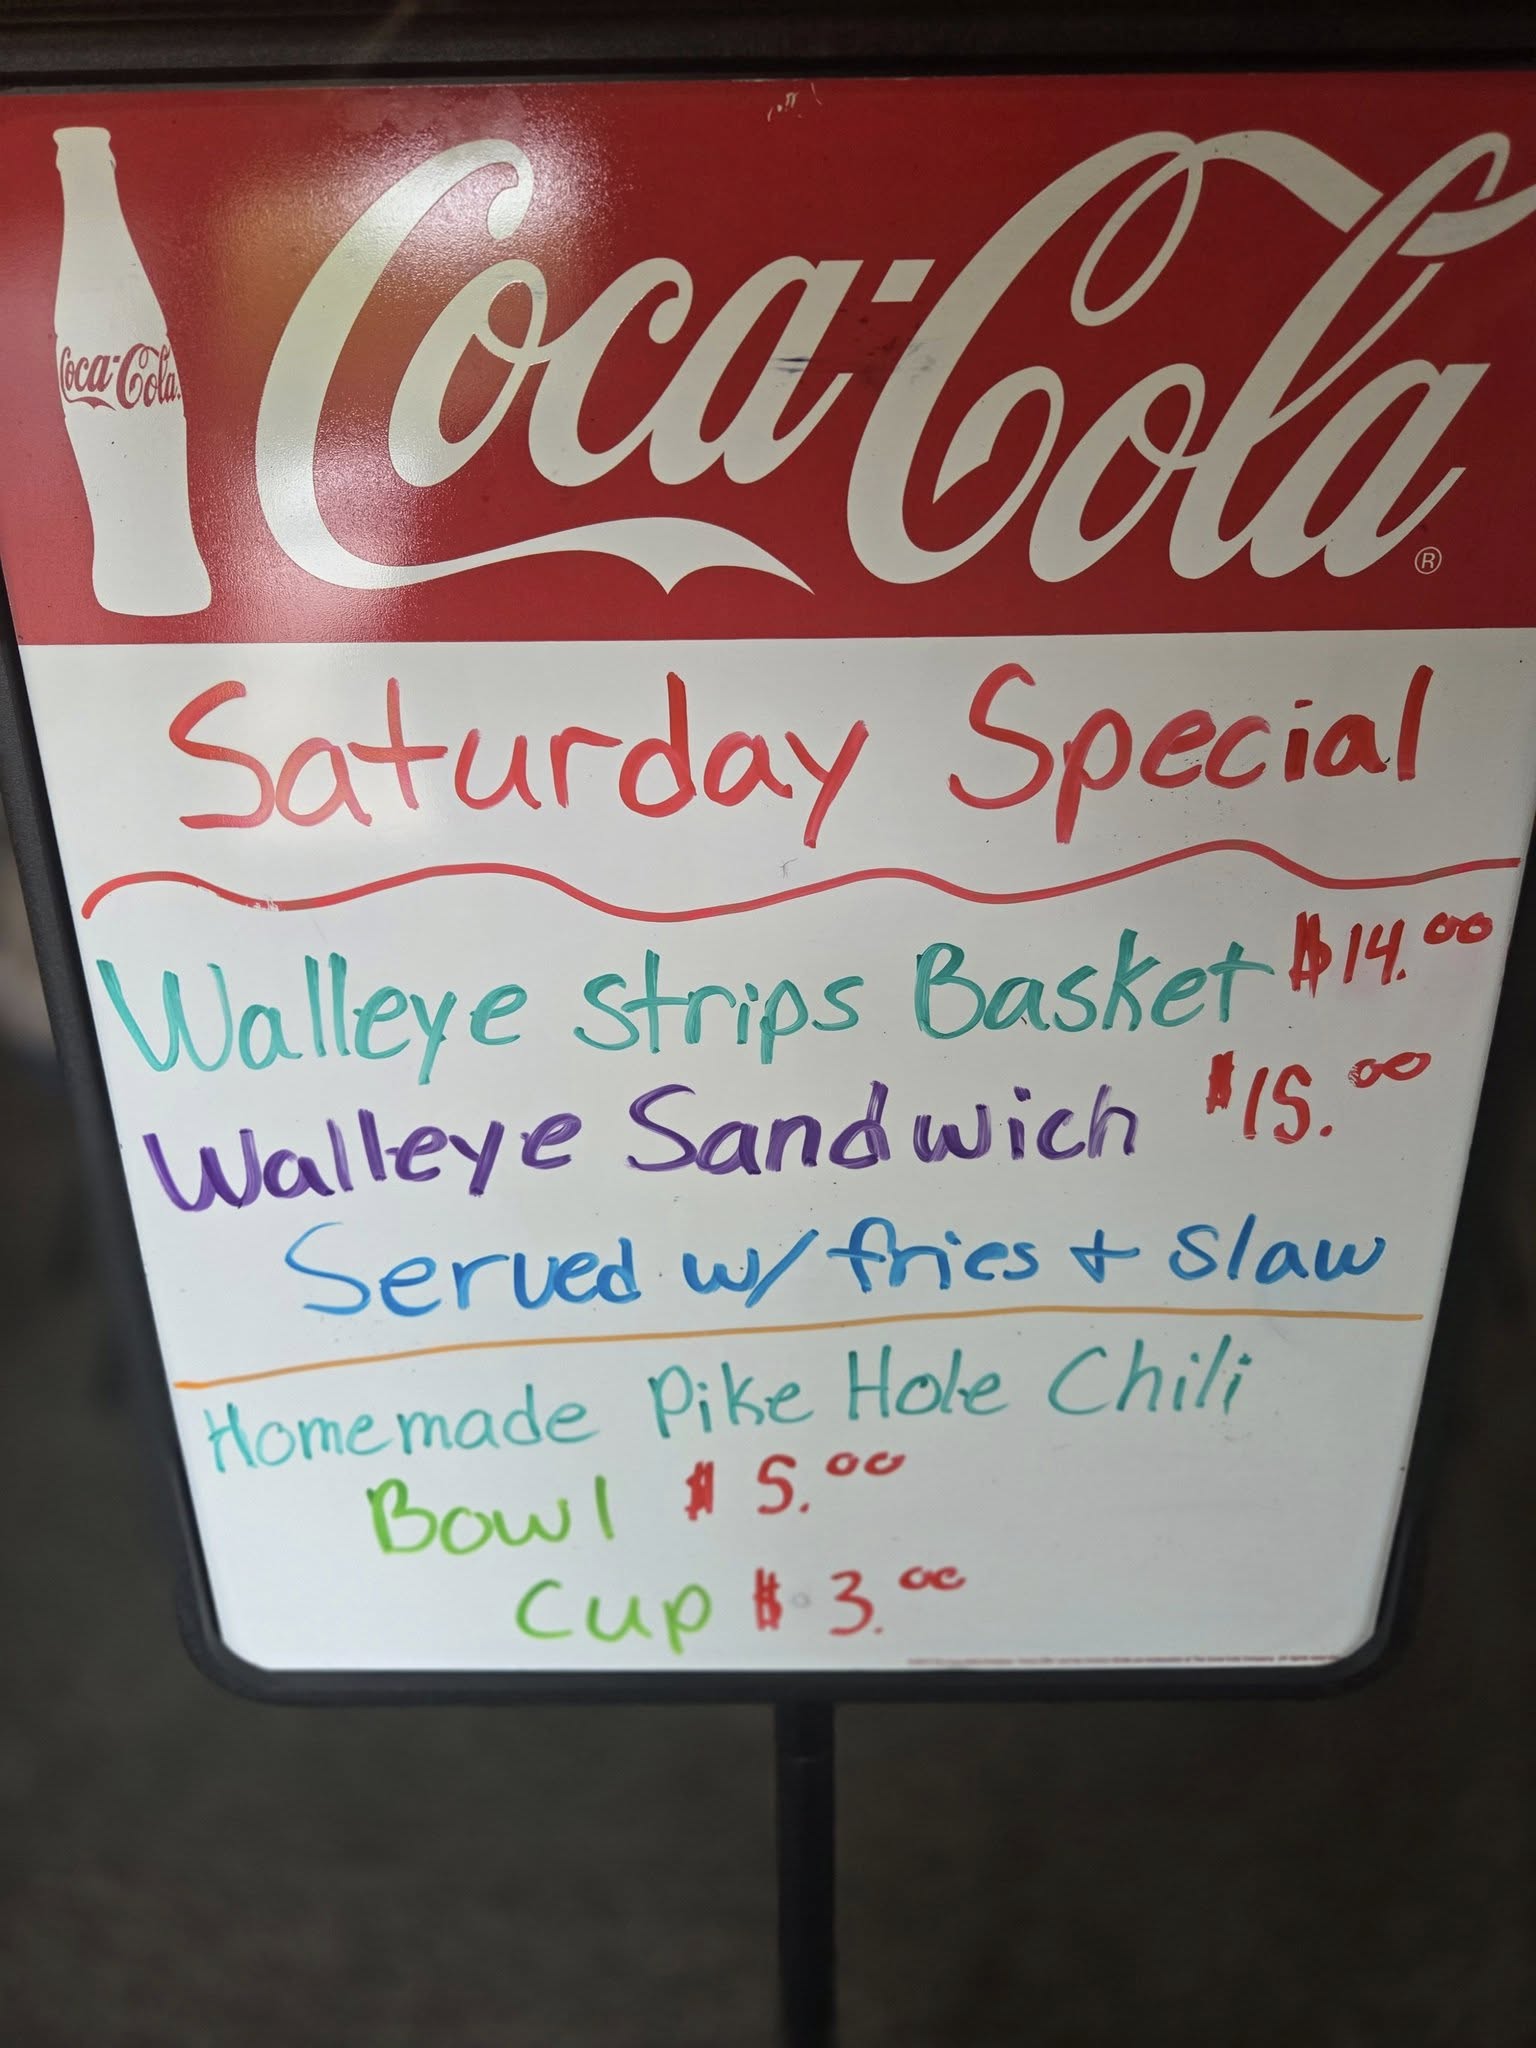 Coca-Cola
Coca-Cola ®
Saturday Special
Walleye Strips Basket $14.00
Walleye Sandwich $15.00
Served w/ fries + Slaw
Homemade Pike Hole Chili
Bowl $5.00
Cup $3.00